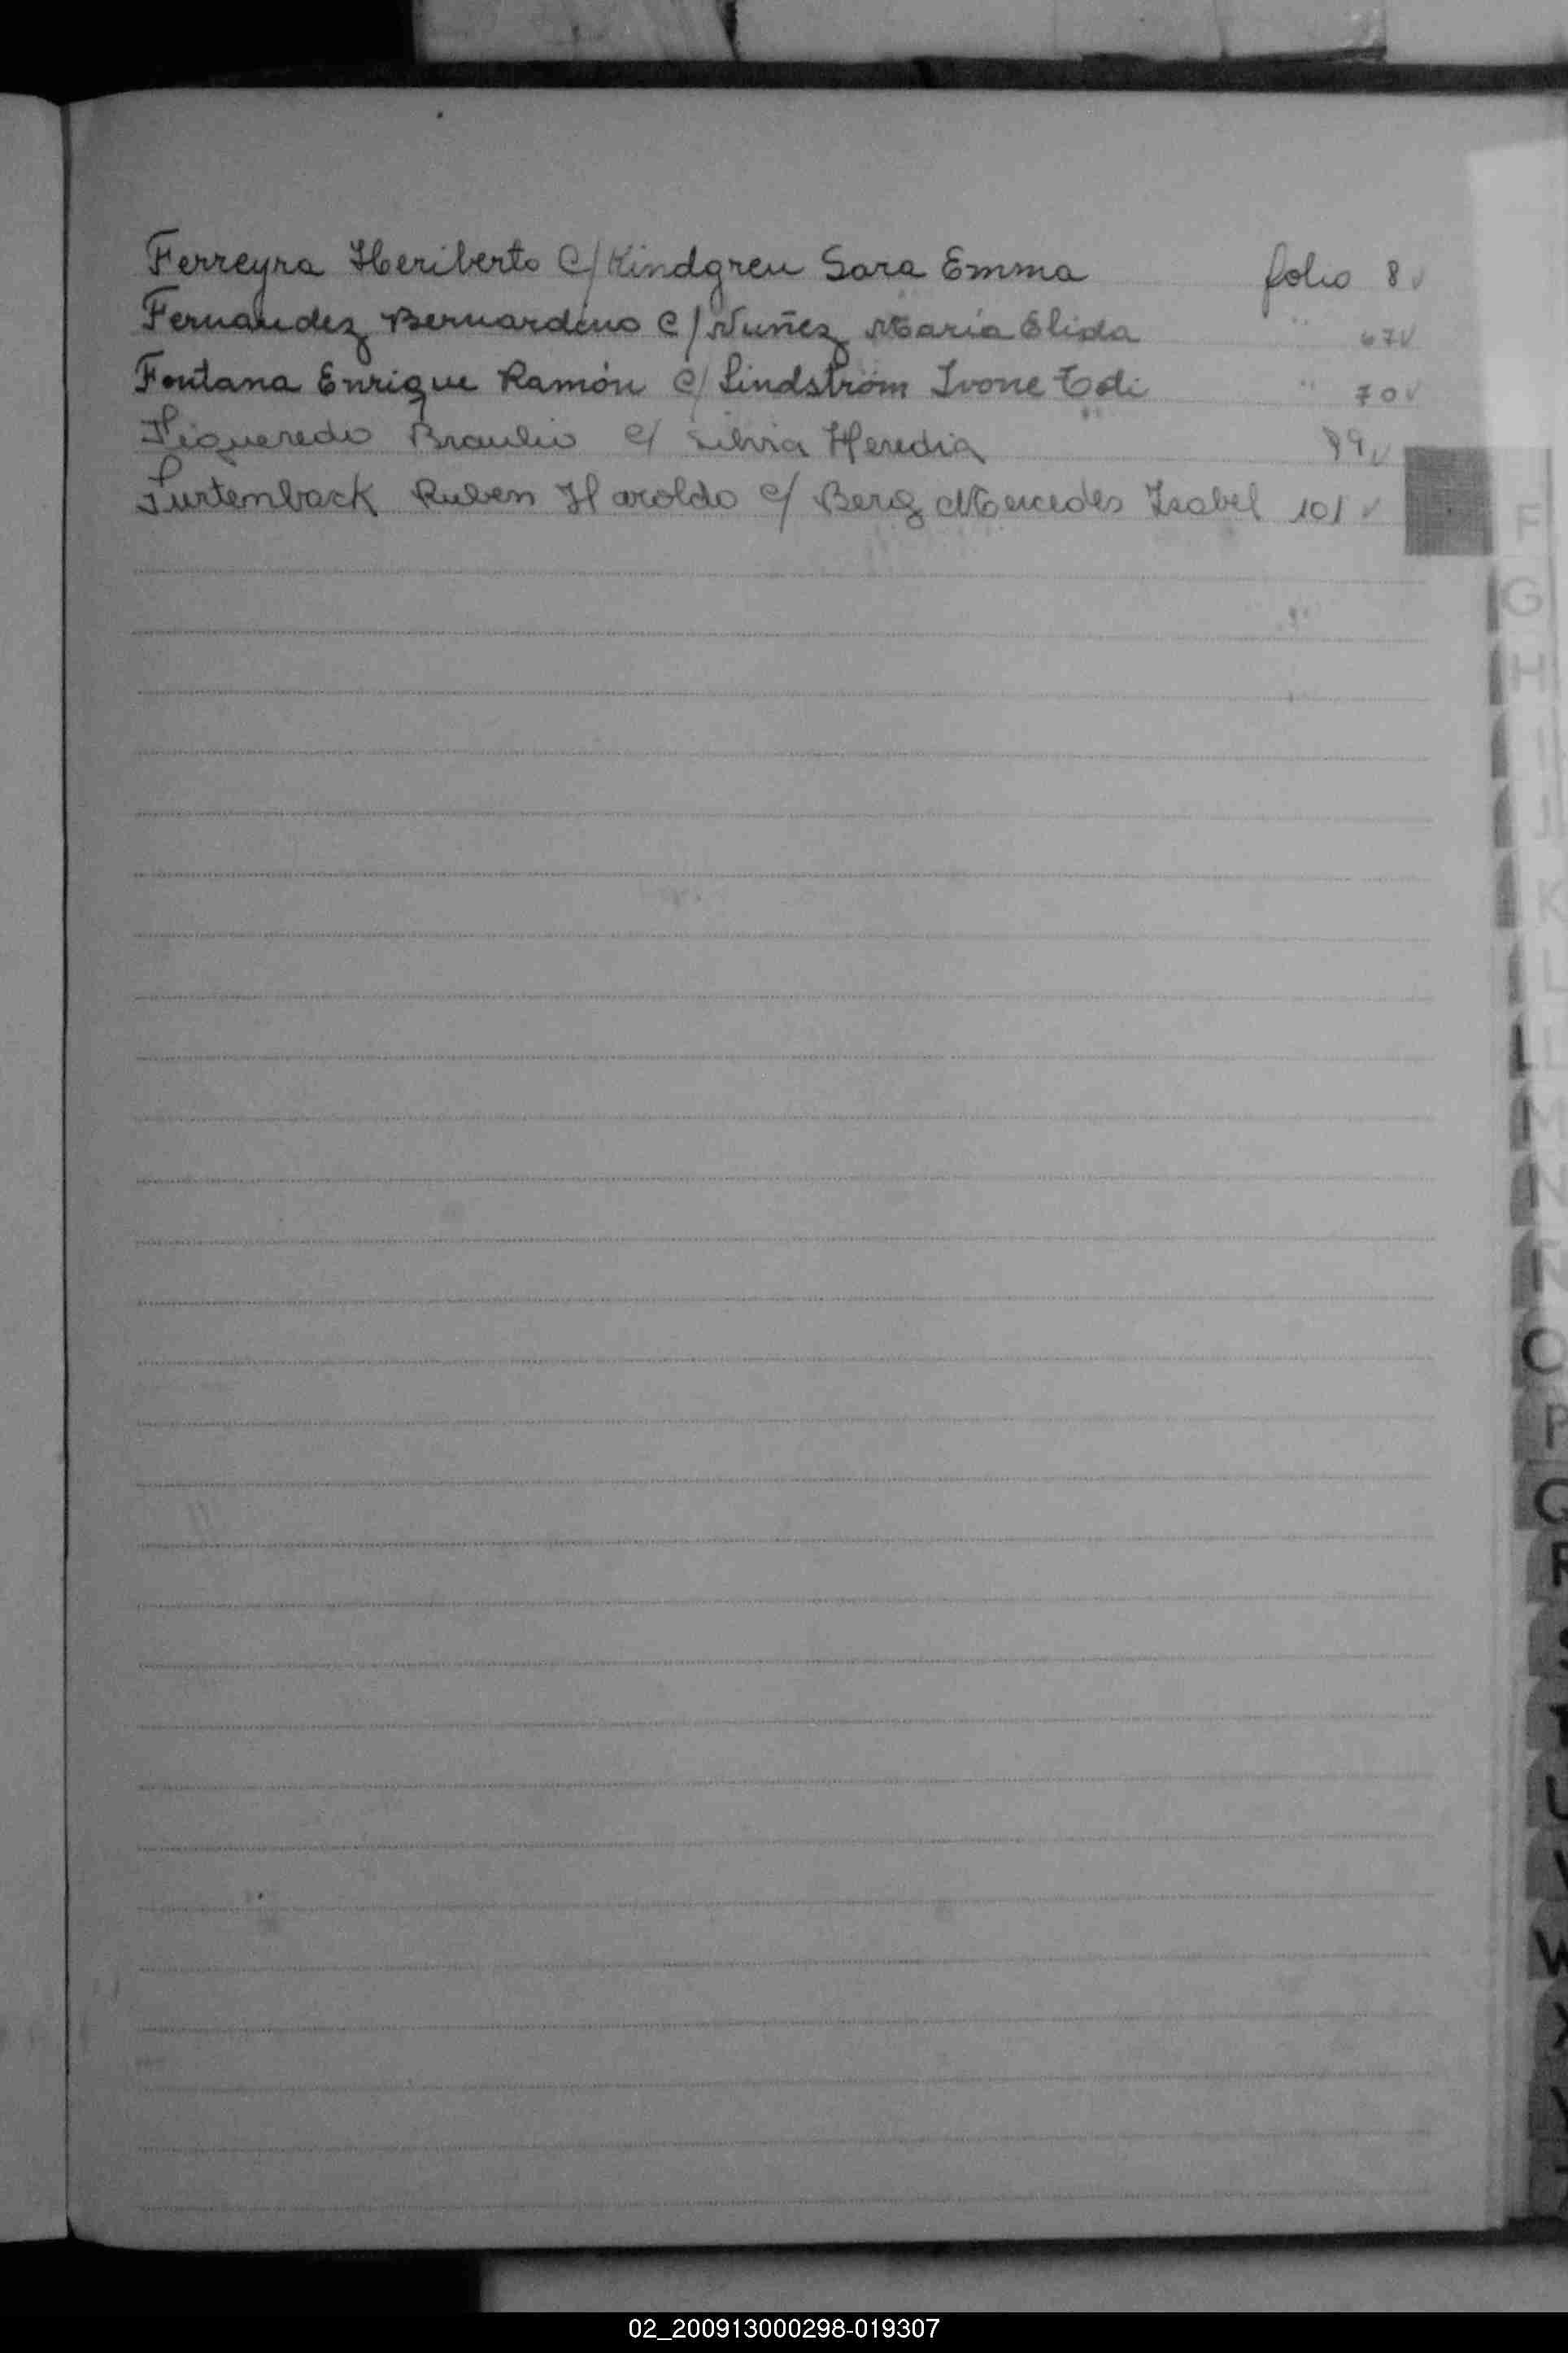 Ferreyra Heriberto c/ Kindgren Sara Emma folio 8 v
Fernandez Bernardino c/ Nuñez María Elida " 67 v
Fontana Enrique Ramón c/ Lindström Ivone Edi " 70 v
Figueredo Braulio c/ Silvia Heredia 89 v
Furtenback Ruben Haroldo c/ Berg Mercedes Isabel 101 v
F
G
H
I
J
K
L
LL
M
N
Ñ
O
P
Q
R
S
T
U
V
W
X
02_200913000298-019307